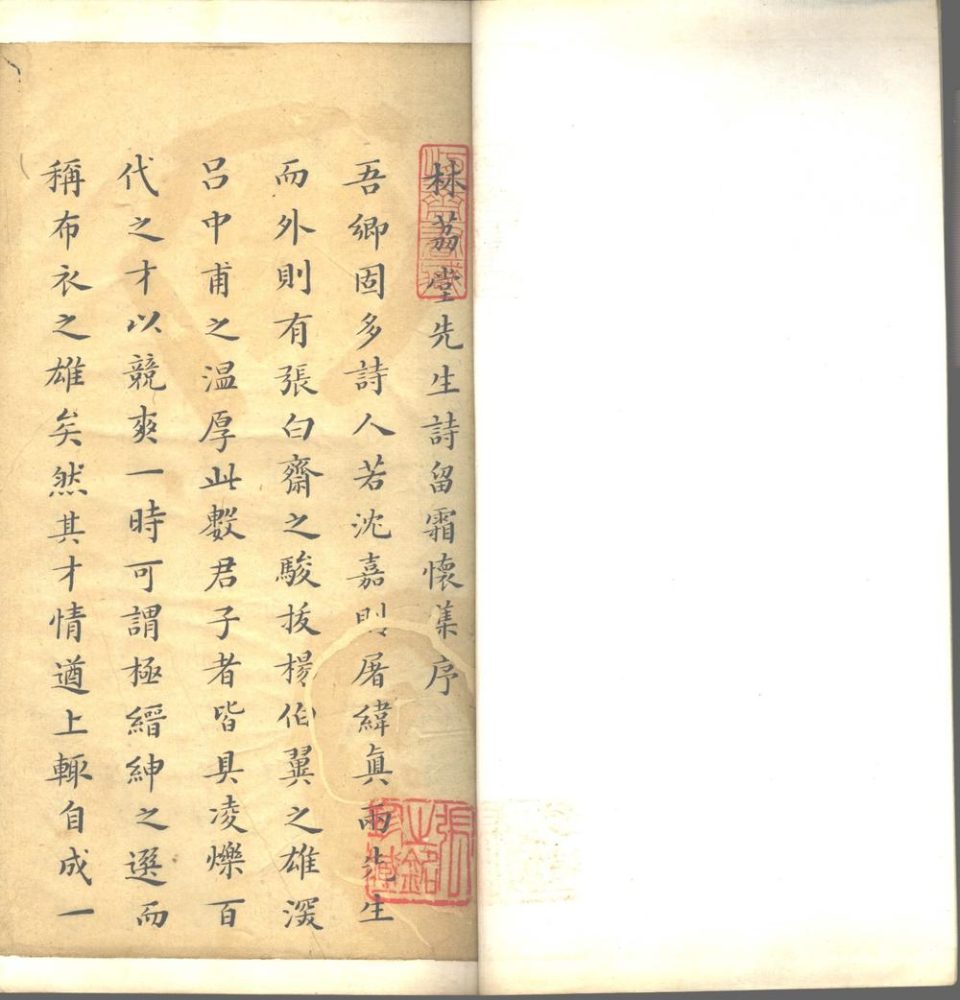 林茘堂先生詩留霜懷集序
吾鄉固多詩人若沈嘉則屠緯眞兩先生
而外則有張白齋之駿拔楊伯翼之雄深
呂中甫之温厚此數君子者皆具凌爍百
代之才以競爽一時可謂極縉紳之選而
稱布衣之雄矣然其才情遒上輙自成一
張之銘珍藏